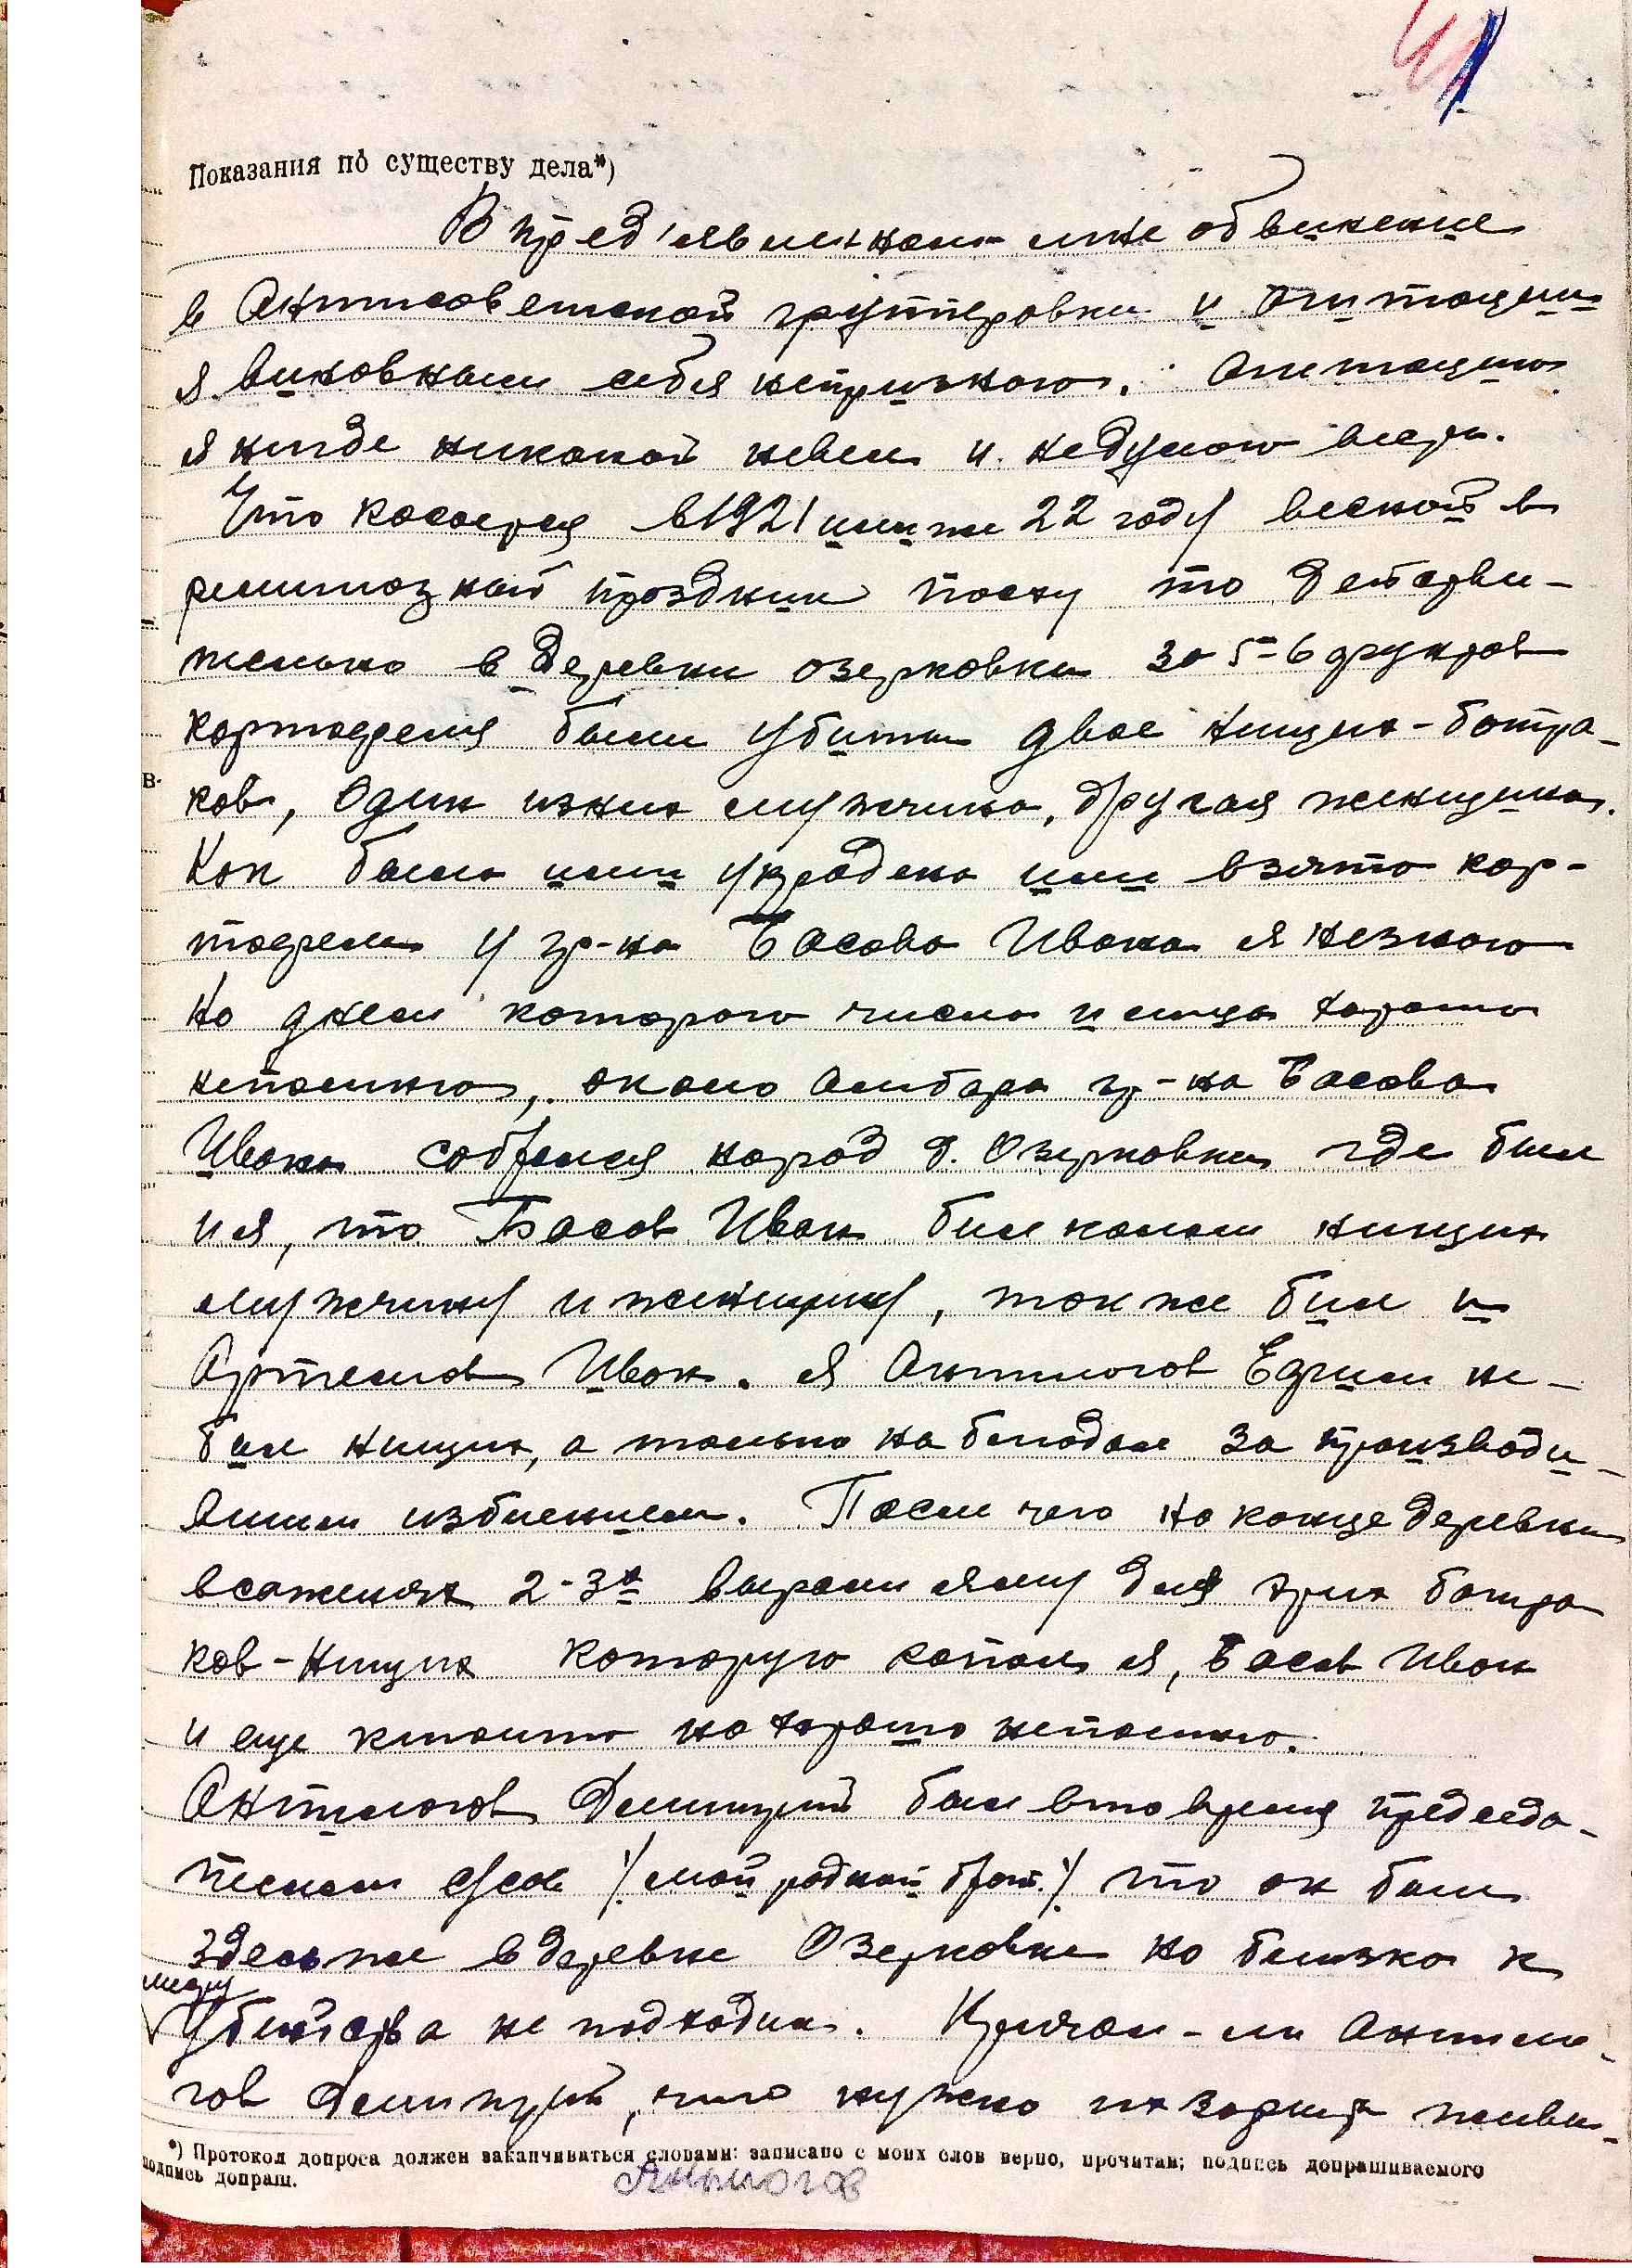 41
Показания по существу дела*)
В пред'явленном мне обвинение
в Антисоветской группировки и агитации
я виновным себя непризнаю. Агитацию
я нигде никакой невел и недумаю вести.
Что касается в 1921 или же 22 году весной в
религиозный праздник пасху то действи-
тельно в деревни озерковки за 5-6 фунтов
картофеля были убиты двое нищих-батра-
ков, один изних мужчина, другая женщина.
Как было ими украдено или взято кар-
тофель у гр-на Басова Ивана я незнаю
но днем которого числа и м-ца хорошо
непомню, около амбара гр-на Басова
Ивана собрался народ д. Озерковки где был
и я, то Басов Иван бил колом нищих
мужчину и женщину, так же бил и
Артемов Иван. Я Антипогов Ефим не-
бил нищих, а только наблюдал за производи-
вшим избиением. После чего на конце деревни
в саженях 2-3х вырыли яму для этих батра
ков-нищих которую копал я, Басов Иван
и еще ктоито но хорошо непомню.
Антипогов Дмитрий был вто время председа-
телем с/сов /мой родной брат./ то он был
здесь же в деревне Озерковки но близко к
месту
Убийства не подходил. Кричал-ли Антипо-
гов Дмитрий, что нужно их зарыть живы-
*) Протокол допроса должен заканчиваться словами: записано с моих слов верно, прочитан; подпись допрашиваемого
подпись допраш.
Антипогов